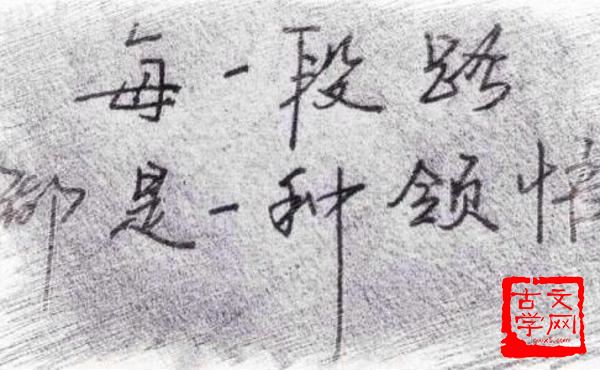 每一段路
都是一种领
古文
学网